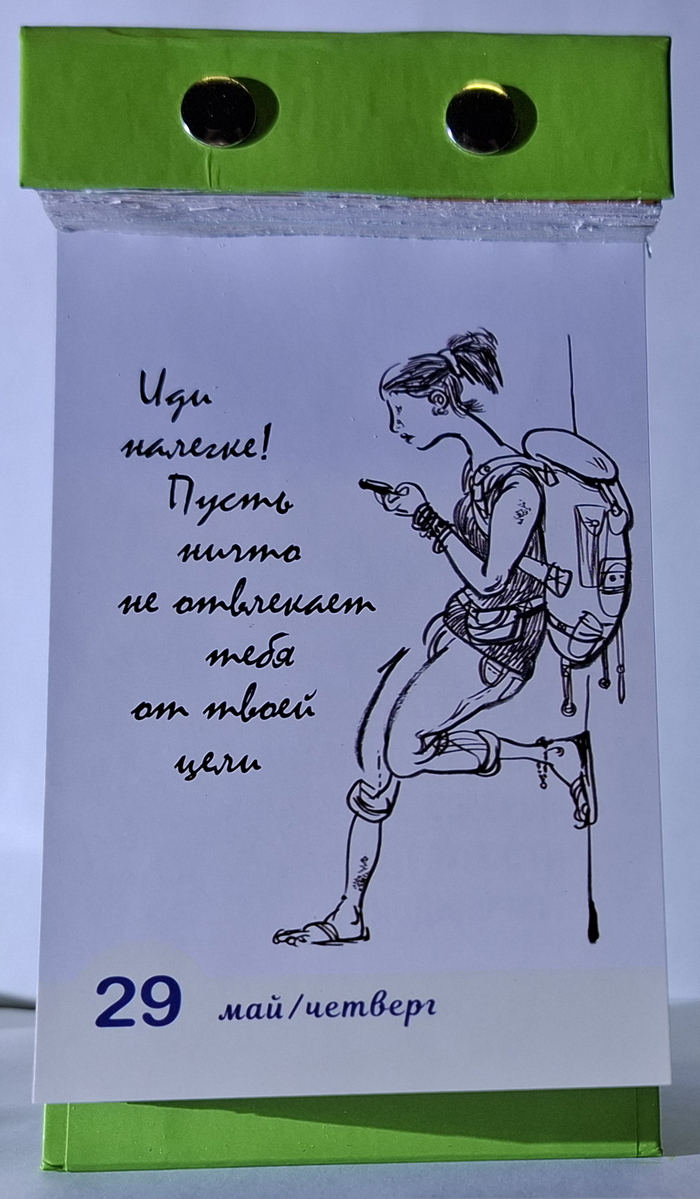 Иди
налегке!
Пусть
ничто
не отвлекает
тебя
от твоей
цели
29 май/четверг